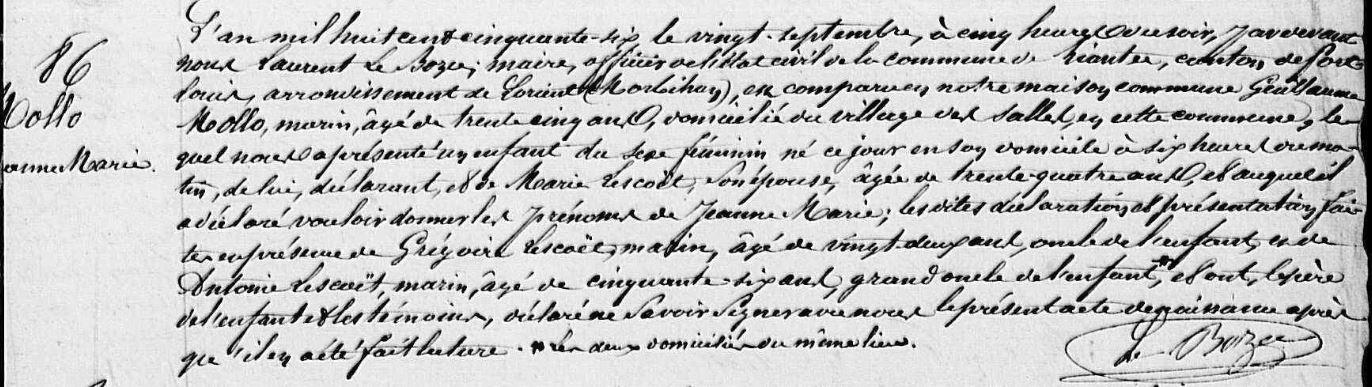 86
Mollo
Jeanne Marie.
L'an mil huit cent cinquante-six le vingt septembre, à cinq heures du soir, par devant
nous Laurent Le Bozec, maire, officier de l'état civil de la commune de Riantec, canton de Port-
Louis, arrondissement de Lorient (Morbihan), est comparu en notre maison commune Guillaume
Mollo, marin, âgé de trente cinq ans, domicilié du village des Salles, en cette commune, le-
quel nous a présenté un enfant du sexe féminin né ce jour en son domicile à six heures du ma-
tin, de lui, déclarant, et de Marie Lescoët, son épouse, âgée de trente-quatre ans, et auquel il
a déclaré vouloir donner les prénoms de Jeanne Marie; les dites déclaration et présentation fai-
tes en présence de Grégoire Lescoët, marin, âgé de vingt-deux ans, oncle de l'enfant, et de
Antoine Lescoët, marin, âgé de cinquante six ans, grand oncle de l'enfant,* et ont, le père
de l'enfant et les témoins, déclaré ne savoir signer avec nous le présent acte de naissance après
que il en a été fait lecture. * les deux domiciliés du même lieu.
Le Bozec